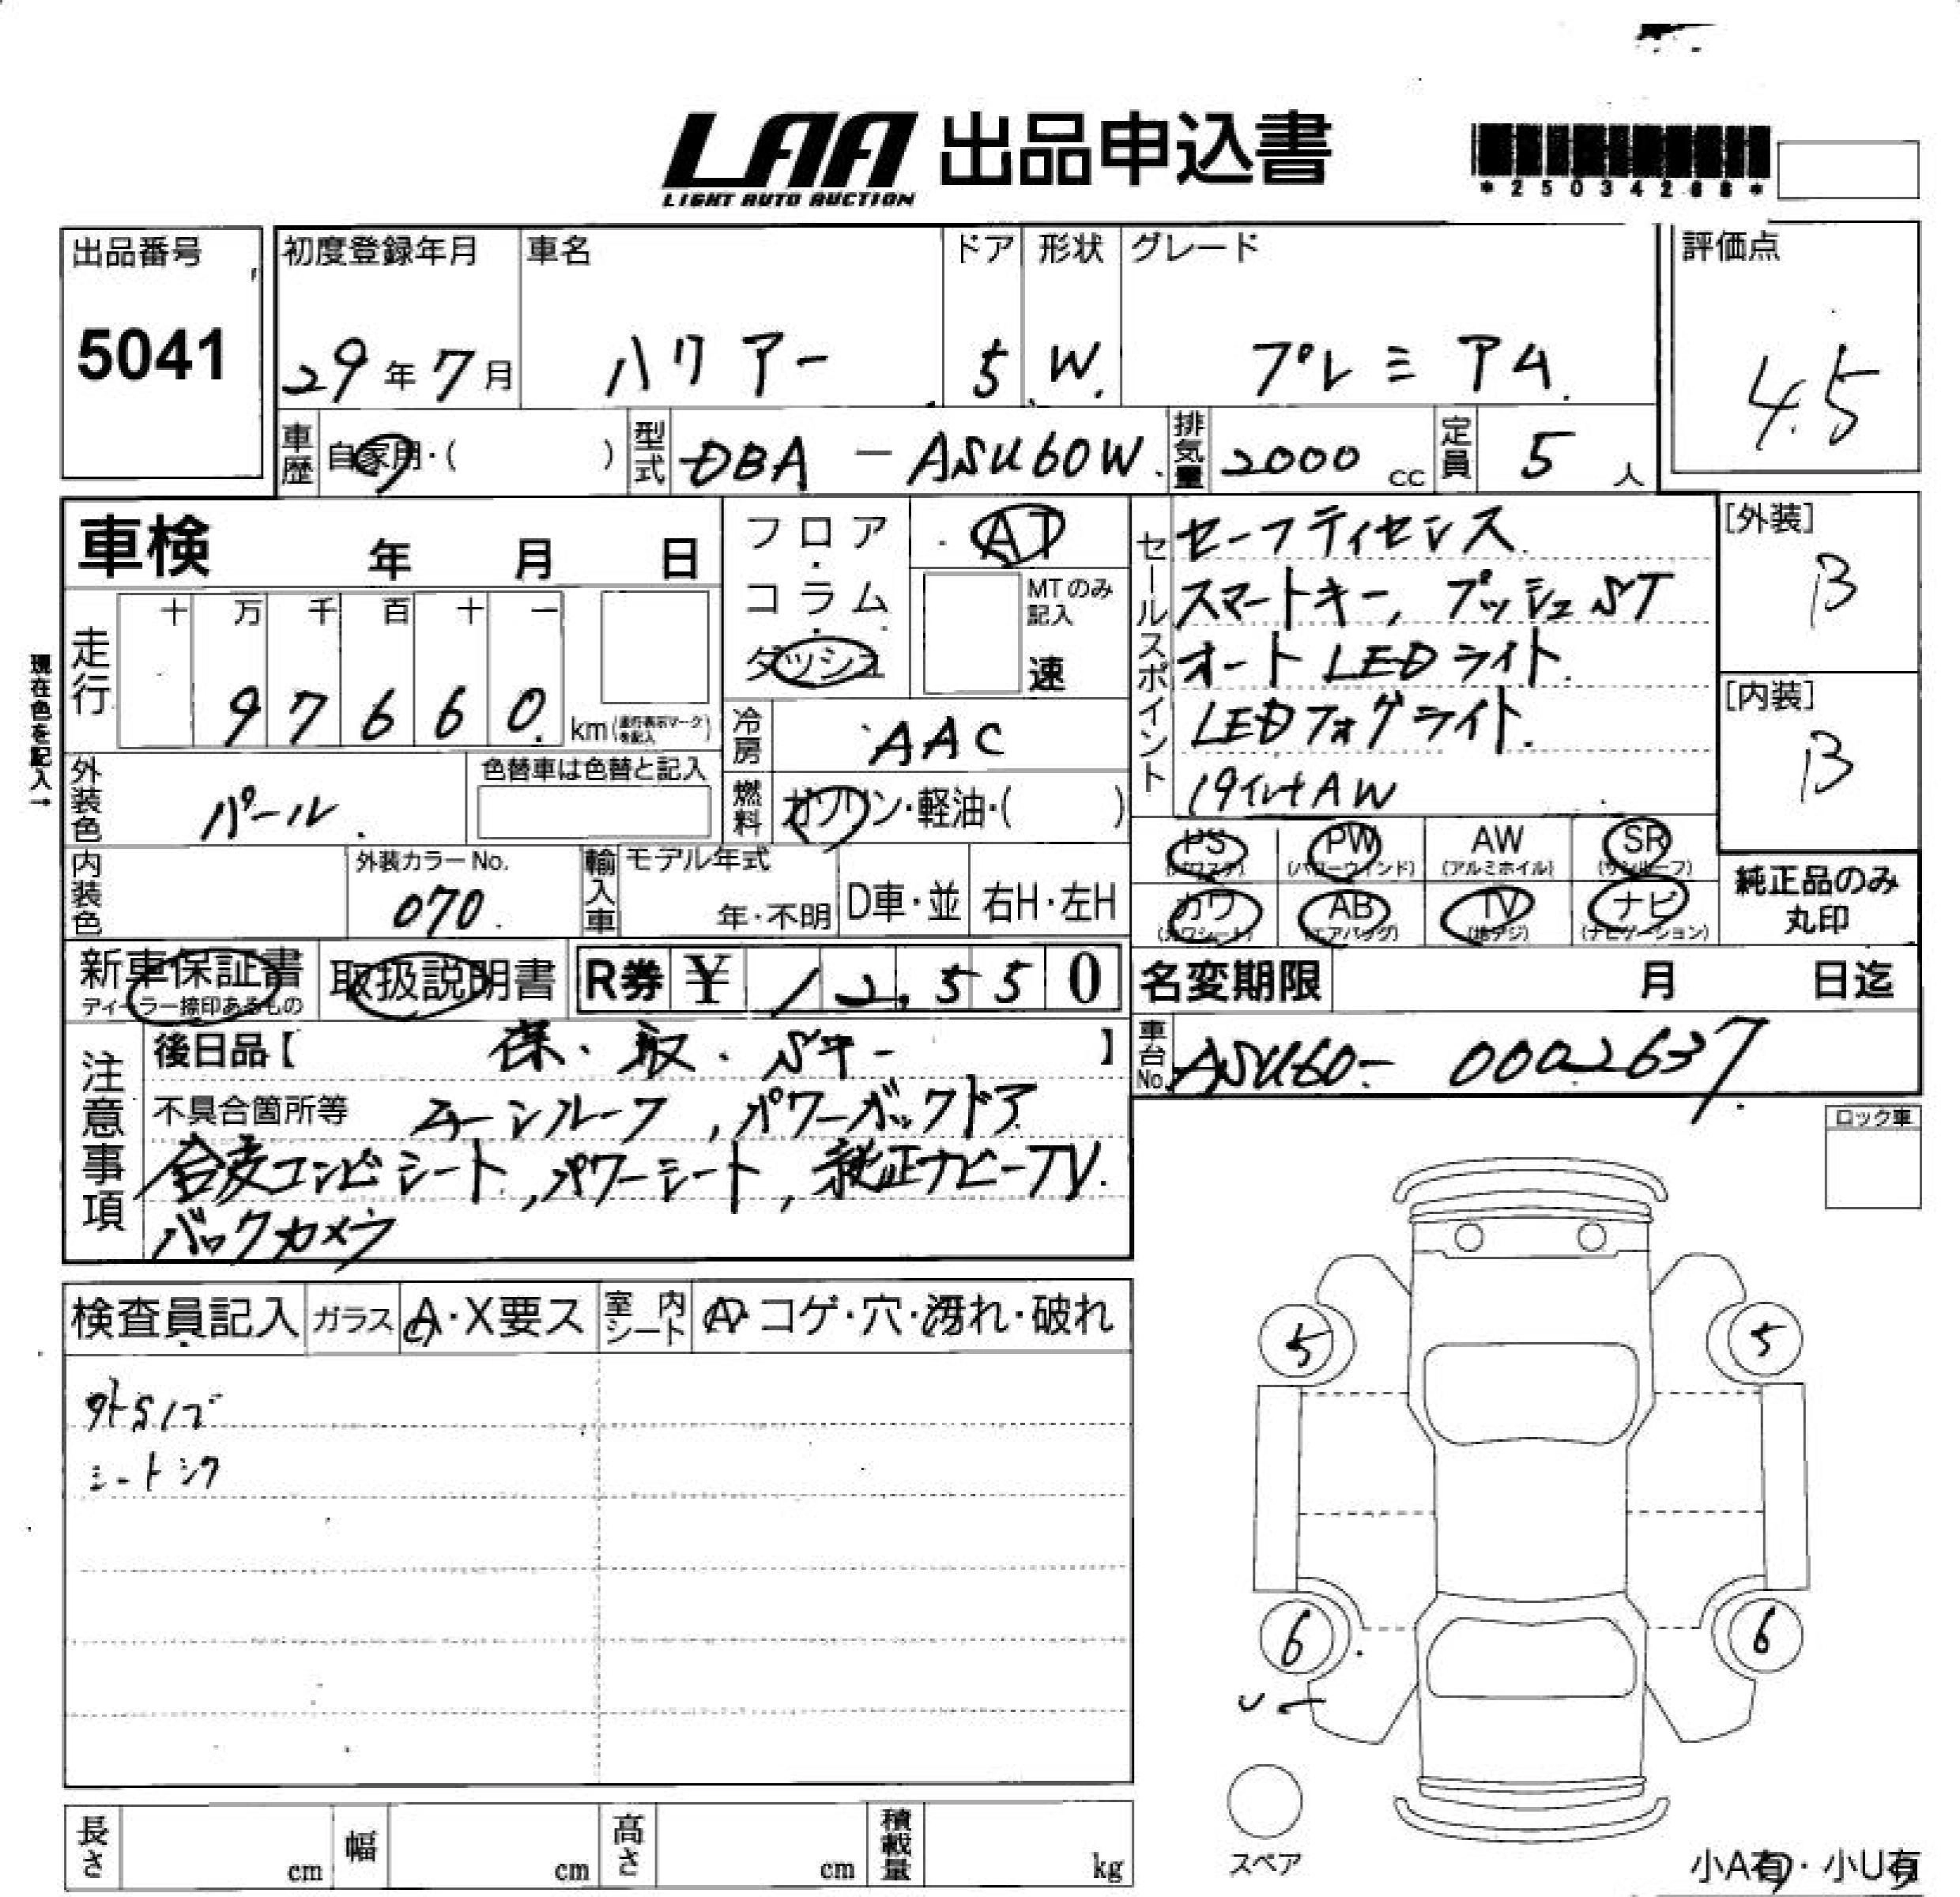 LAA 出品申込書
LIGHT AUTO AUCTION
*25034268*
出品番号 初度登録年月 車名 ドア 形状 グレード 評価点
5041 29年7月 ハリアー 5 W. プレミアム. 4.5
車歴 自家用・( ) 型式 DBA-ASU60W. 排気量 2000cc 定員 5人
車検 年 月 日
フロア・コラム・ダッシュ
AT
MTのみ記入
速
現在色を記入→
走行 十 万 千 百 十 一
97660. km(走行表示マークを記入)
冷房 AAC
外装色 パール. 色替車は色替と記入
燃料 ガソリン・軽油・( )
内装色 外装カラーNo. 070. 輸入車 モデル年式 年・不明 D車・並 右H・左H
セールスポイント
セーフティセンス
スマートキー, プッシュST
オートLEDライト.
LEDフォグライト.
19インチAW
[外装] B
[内装] B
PS(パワステ) PW(パワーウィンド) AW(アルミホイル) SR(サンルーフ)
カワ(カワシート) AB(エアバッグ) TV(地デジ) ナビ(ナビゲーション)
純正品のみ丸印
新車保証書 ディーラー捺印あるもの 取扱説明書 R券 ¥ 12,550
名変期限 月 日迄
車台No. ASU60-0002637
注意事項
後日品【 保・取・Sキー 】
不具合箇所等 ムーンルーフ, パワーバックドア
合皮コンビシート, パワーシート, 純正ナビーTV.
バックカメラ
ロック車
検査員記入 ガラス A・X要ス 室内シート A・コゲ・穴・汚れ・破れ
シートシワ
5 5
6 6
スペア
長さ cm 幅 cm 高さ cm 積載量 kg
小A有・小U有